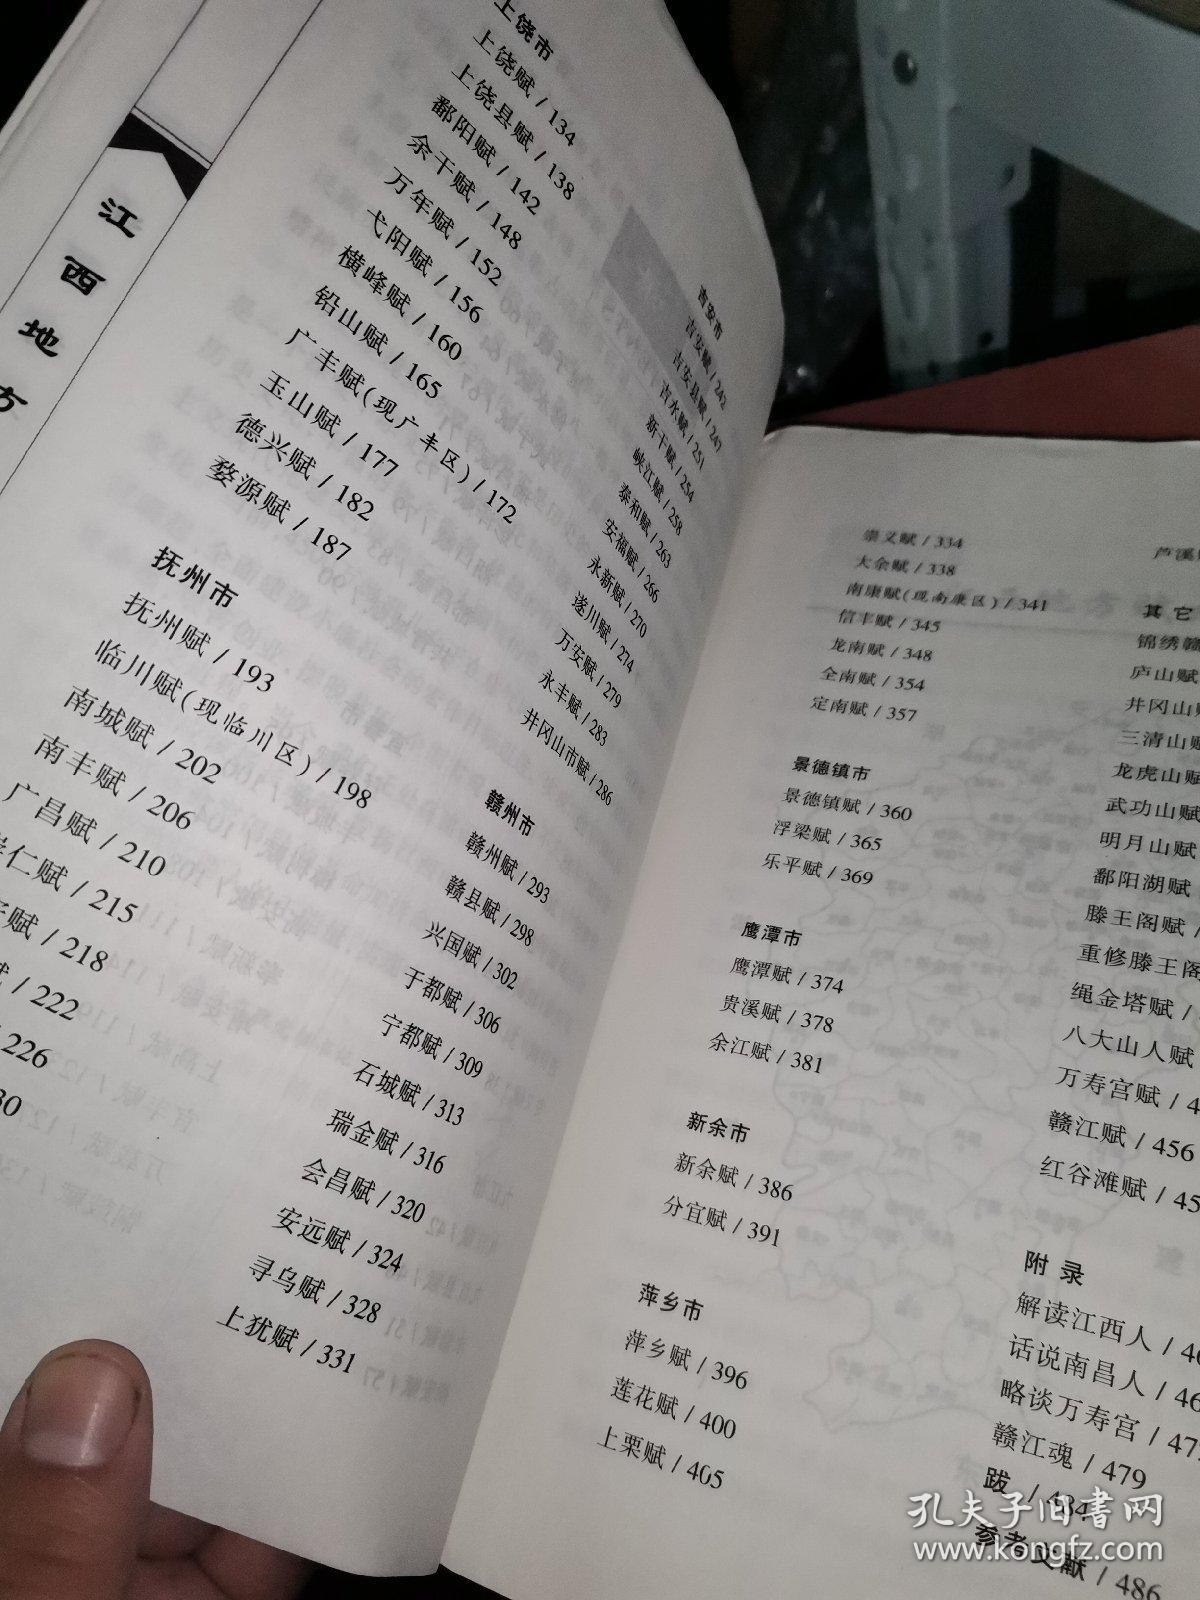 江西地方
上饶市
上饶赋 / 134
上饶县赋 / 138
鄱阳赋 / 142
余干赋 / 148
万年赋 / 152
弋阳赋 / 156
横峰赋 / 160
铅山赋 / 165
广丰赋(现广丰区) / 172
玉山赋 / 177
德兴赋 / 182
婺源赋 / 187
抚州市
抚州赋 / 193
临川赋(现临川区) / 198
南城赋 / 202
南丰赋 / 206
广昌赋 / 210
崇仁赋 / 215
赋 / 218
赋 / 222
226
吉安市
吉安赋 / 242
吉安县赋 / 247
吉水赋 / 251
新干赋 / 254
峡江赋 / 258
泰和赋 / 263
安福赋 / 266
永新赋 / 270
遂川赋 / 274
万安赋 / 279
永丰赋 / 283
井冈山市赋 / 286
赣州市
赣州赋 / 293
赣县赋 / 298
兴国赋 / 302
于都赋 / 306
宁都赋 / 309
石城赋 / 313
瑞金赋 / 316
会昌赋 / 320
安远赋 / 324
寻乌赋 / 328
上犹赋 / 331
崇义赋 / 334
大余赋 / 338
南康赋(现南康区) / 341
信丰赋 / 345
龙南赋 / 348
全南赋 / 354
定南赋 / 357
景德镇市
景德镇赋 / 360
浮梁赋 / 365
乐平赋 / 369
鹰潭市
鹰潭赋 / 374
贵溪赋 / 378
余江赋 / 381
新余市
新余赋 / 386
分宜赋 / 391
萍乡市
萍乡赋 / 396
莲花赋 / 400
上栗赋 / 405
芦溪
其它
锦绣赣
庐山赋
井冈山赋
三清山赋
龙虎山赋
武功山赋
明月山赋
鄱阳湖赋
滕王阁赋 /
重修滕王阁
绳金塔赋 /
八大山人赋
万寿宫赋 / 4
赣江赋 / 456
红谷滩赋 / 45
附录
解读江西人 / 46
话说南昌人 / 46
略谈万寿宫 / 47
赣江魂 / 479
跋 / 484
参考文献 / 486
孔夫子旧书网
www.kongfz.com